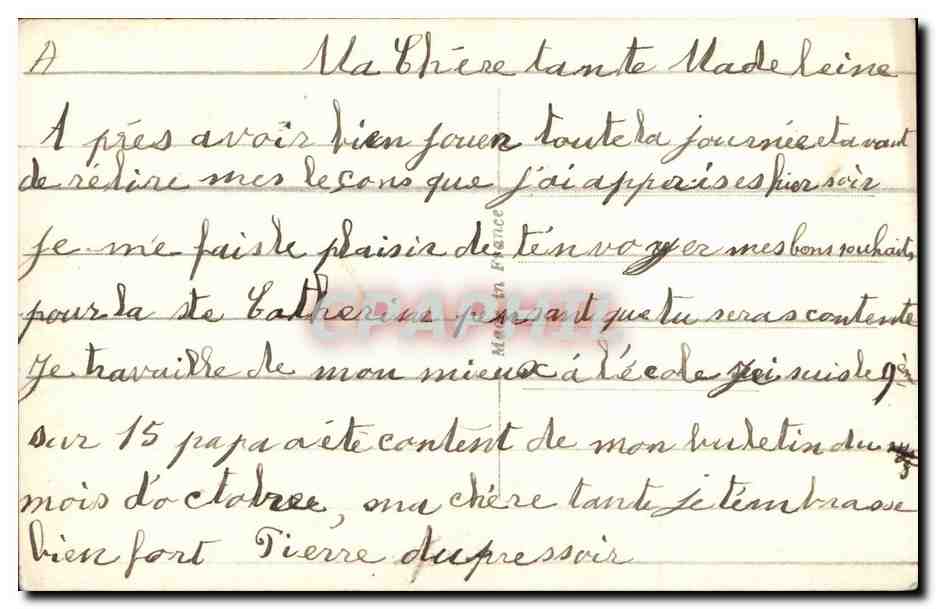 A Ma Chére tante Madeleine
Aprés avoir bien jouer toute la journée et avant
de rélire mes leçons que j'ai apprises hier soir
je me fais le plaisir de t'envoyer mes bons souhaits
pour la ste Catherine pensant que tu seras contente
Je travaille de mon mieux á l'école je suis le 9è
sur 15 papa a été content de mon buletin du
mois d'octobre, ma chére tante je t'embrasse
bien fort Pierre dupressoir
Made in France
CPARAMA